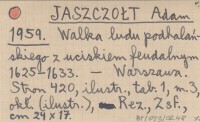 JASZCZOŁT Adam
1959. Walka ludu podhalań-
skiego z uciskiem feudalnym
1625-1633. — Warszawa.
Stron 420, ilustr., tab. 1, m. 3,
okł. (ilustr.), — Rez., Zsf.,
cm 24 × 17.